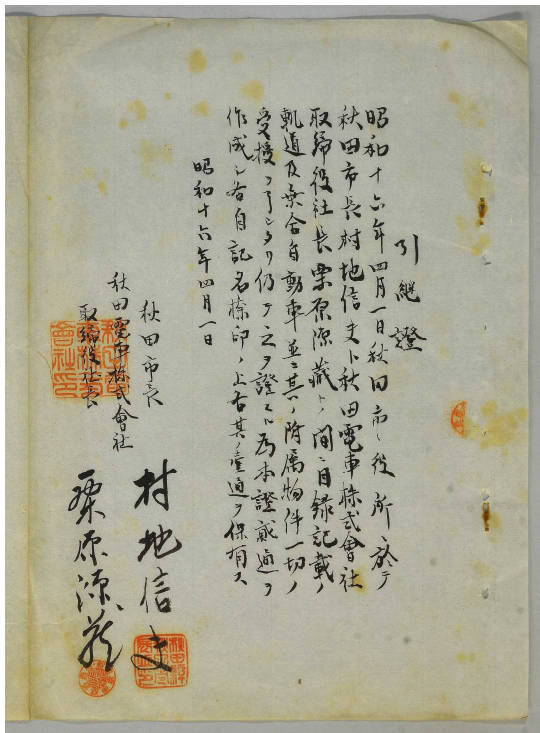 引繼證
昭和十六年四月一日秋田市役所ニ於テ
秋田市長村地信夫ト秋田電車株式會社
取締役社長栗原源藏トノ間ニ目錄記載ノ
軌道及乗合自動車並ニ其ノ附属物件一切ノ
受授ヲ了シタリ仍テ之ヲ證スル為本證貳通ヲ
作成シ各自記名捺印ノ上各其ノ壹通ヲ保有ス
昭和十六年四月一日
秋田市長 村地信夫
秋田電車株式會社
取締役社長 栗原源藏